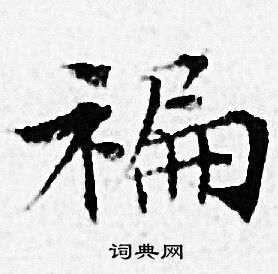 褊
词典网